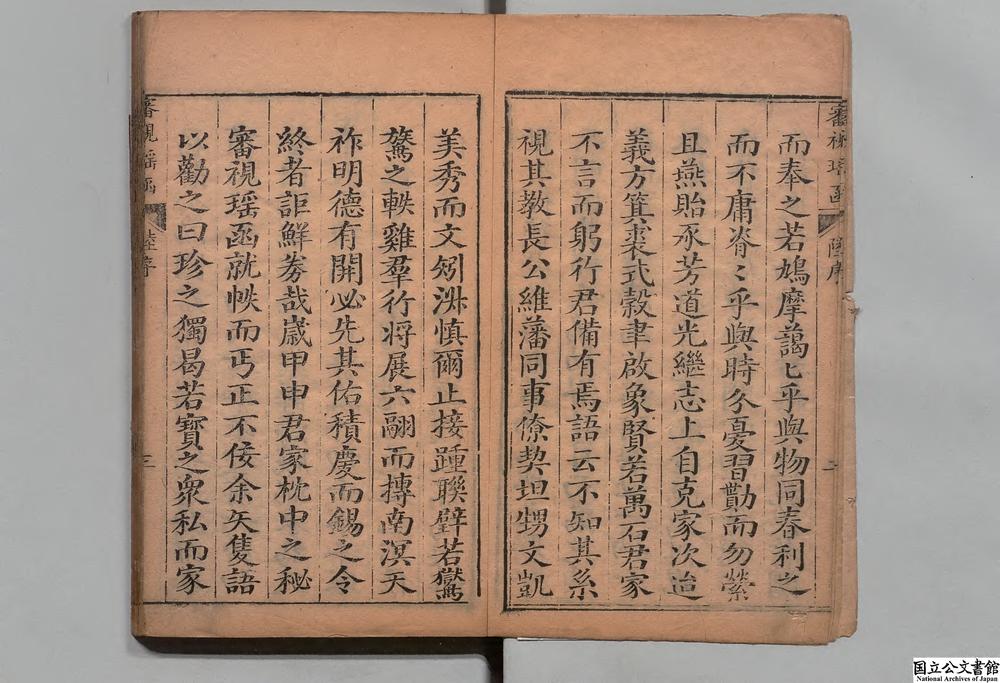 審視瑤函 陸序 二
而奉之若鳩摩藹〻乎與物同春利之
而不庸脊〻乎與時分憂習勤而勿縈
且燕貽承芳道光繼志上自克家次迨
義方箕裘式穀聿啟象賢若萬石君家
不言而躬行君備有焉語云不知其系
視其教長公維藩同事僚契坦甥文凱
美秀而文矧洪慎爾止接踵聯鑣若鸑
鷟之軼雞羣行將展六翮而摶南溟天
祚明德有開必先其佑積慶而錫之令
終者詎鮮券哉歲甲申君家枕中之秘
審視瑶函就帙而丐正不佞余矢隻語
以勸之曰珍之獨曷若寶之衆私而家
審視瑤函 陸序 三
国立公文書館
National Archives of Japan